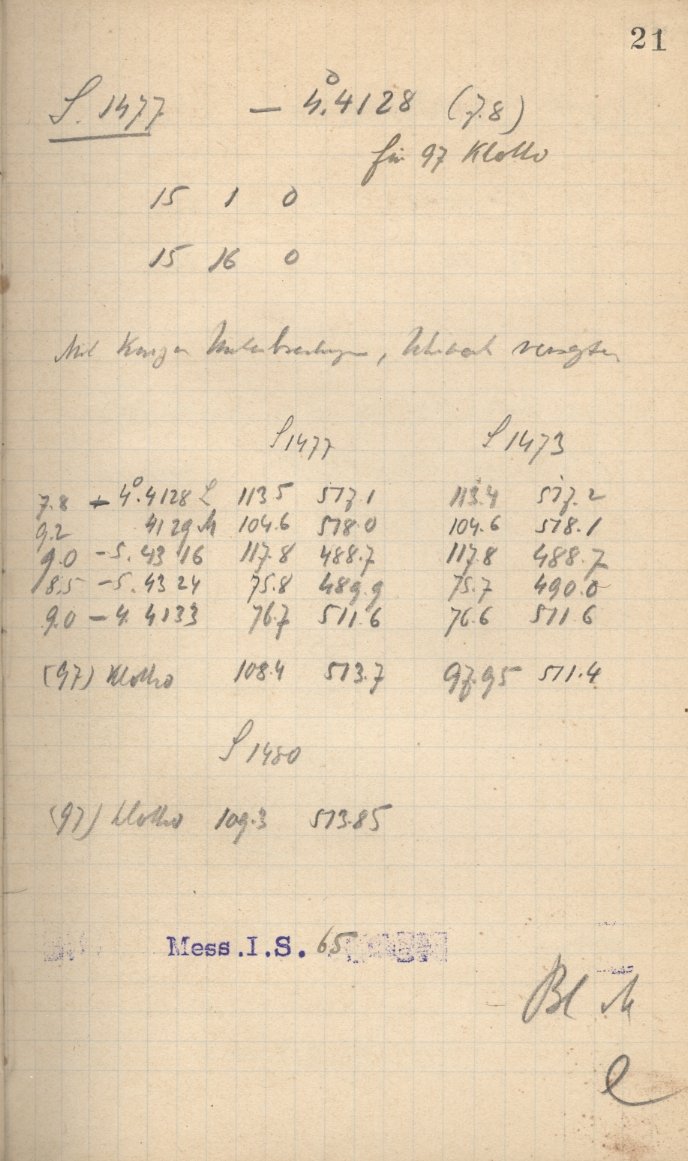 21
S. 1477 — 4°.4128 (7.8)
für 97 Klotho
15 1 0
15 16 0
Mit kurzen Unterbrechungen, versagte
S 1477 S 1473
7.8 – 4°.4128 L 113.5 517.1 113.4 517.2
9.2 4129 M 104.6 518.0 104.6 518.1
9.0 – 5. 4316 117.8 488.7 117.8 488.7
8.5 – 5. 4324 75.8 489.9 75.7 490.0
9.0 – 4. 4133 76.7 511.6 76.6 511.6
(97) Klotho 108.4 513.7 97.95 511.4
S 1480
(97) Klotho 109.3 513.85
Mess.I.S. 65
Bl M
e